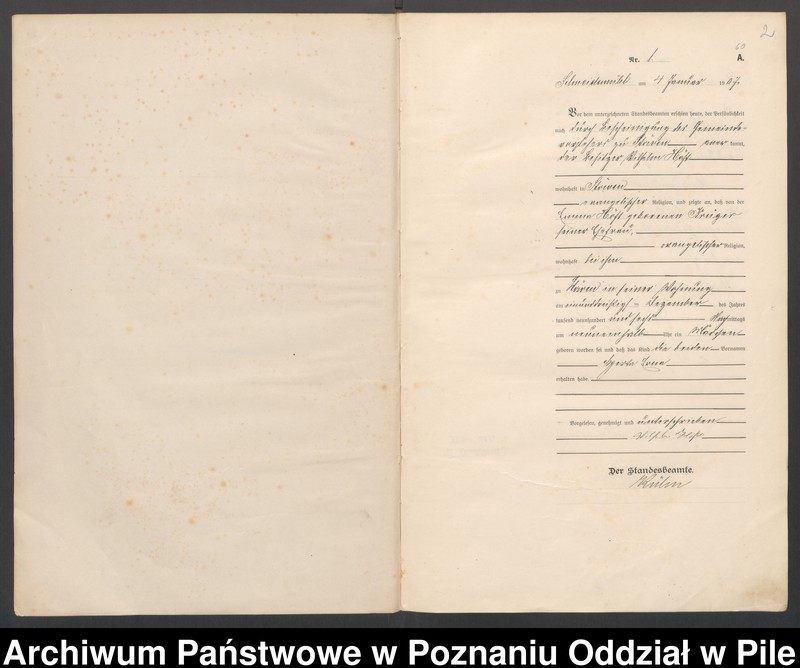 2
60
Nr. 1 A.
Schneidemühl am 4 Januar 1907.
Vor dem unterzeichneten Standesbeamten erschien heute, der Persönlichkeit
nach durch Bescheinigung des Gemeinde-
vorstehers zu Stöwen aner kannt,
der Besitzer Wilhelm
wohnhaft in Stöwen
evangelischer Religion, und zeigte an, daß von der
Emma geborenen Krüger
seiner Ehefrau,
evangelischer Religion,
wohnhaft bei ihm
zu Stöwen in seiner Wohnung
am einunddreißigsten Dezember des Jahres
tausend neunhundert und sechs Nachmittags
um neuneinhalb Uhr ein Mädchen
geboren worden sei und daß das Kind die beiden Vornamen
Erna
erhalten habe.
Vorgelesen, genehmigt und unterschrieben
Der Standesbeamte.
Archiwum Państwowe w Poznaniu Oddział w Pile